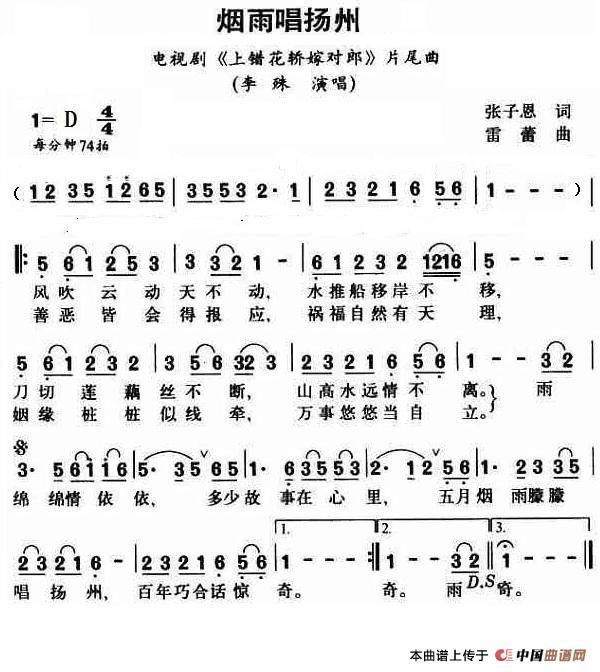 烟雨唱扬州
电视剧《上错花轿嫁对郎》片尾曲
(李殊 演唱)
1=D 4/4
张子恩 词
每分钟74拍
雷蕾 曲
(12 35 i265 | 3553 2·1 | 2321 6 56 | 1 - - - )
5 61 25 3 | 3 32 1 - | 61 23 2 1216 | 5 - - -
风吹云动天不动, 水推船移岸不移,
善恶皆会得报应, 祸福自然有天理,
5 61 23 2 | 5 35 2 - | 3532 1 56 | 1 - - 32
刀切莲藕丝不断, 山高水远情不离。雨
姻缘桩桩似线牵, 万事悠悠当自立。
3· 5611 16 | 5· 35 65 | 3 5321 3 | 2· 12 56 | 1 0323 35
绵绵情依依, 多少故事在心里, 五月烟雨朦朦
1. 2. 3.
2321 2 - | 2321 6 56 | 1 - - - | 1 - - 32 | 1 - - -
D.S
唱扬州, 百年巧合话惊奇。 奇。雨 奇。
本曲谱上传于 中国曲谱网